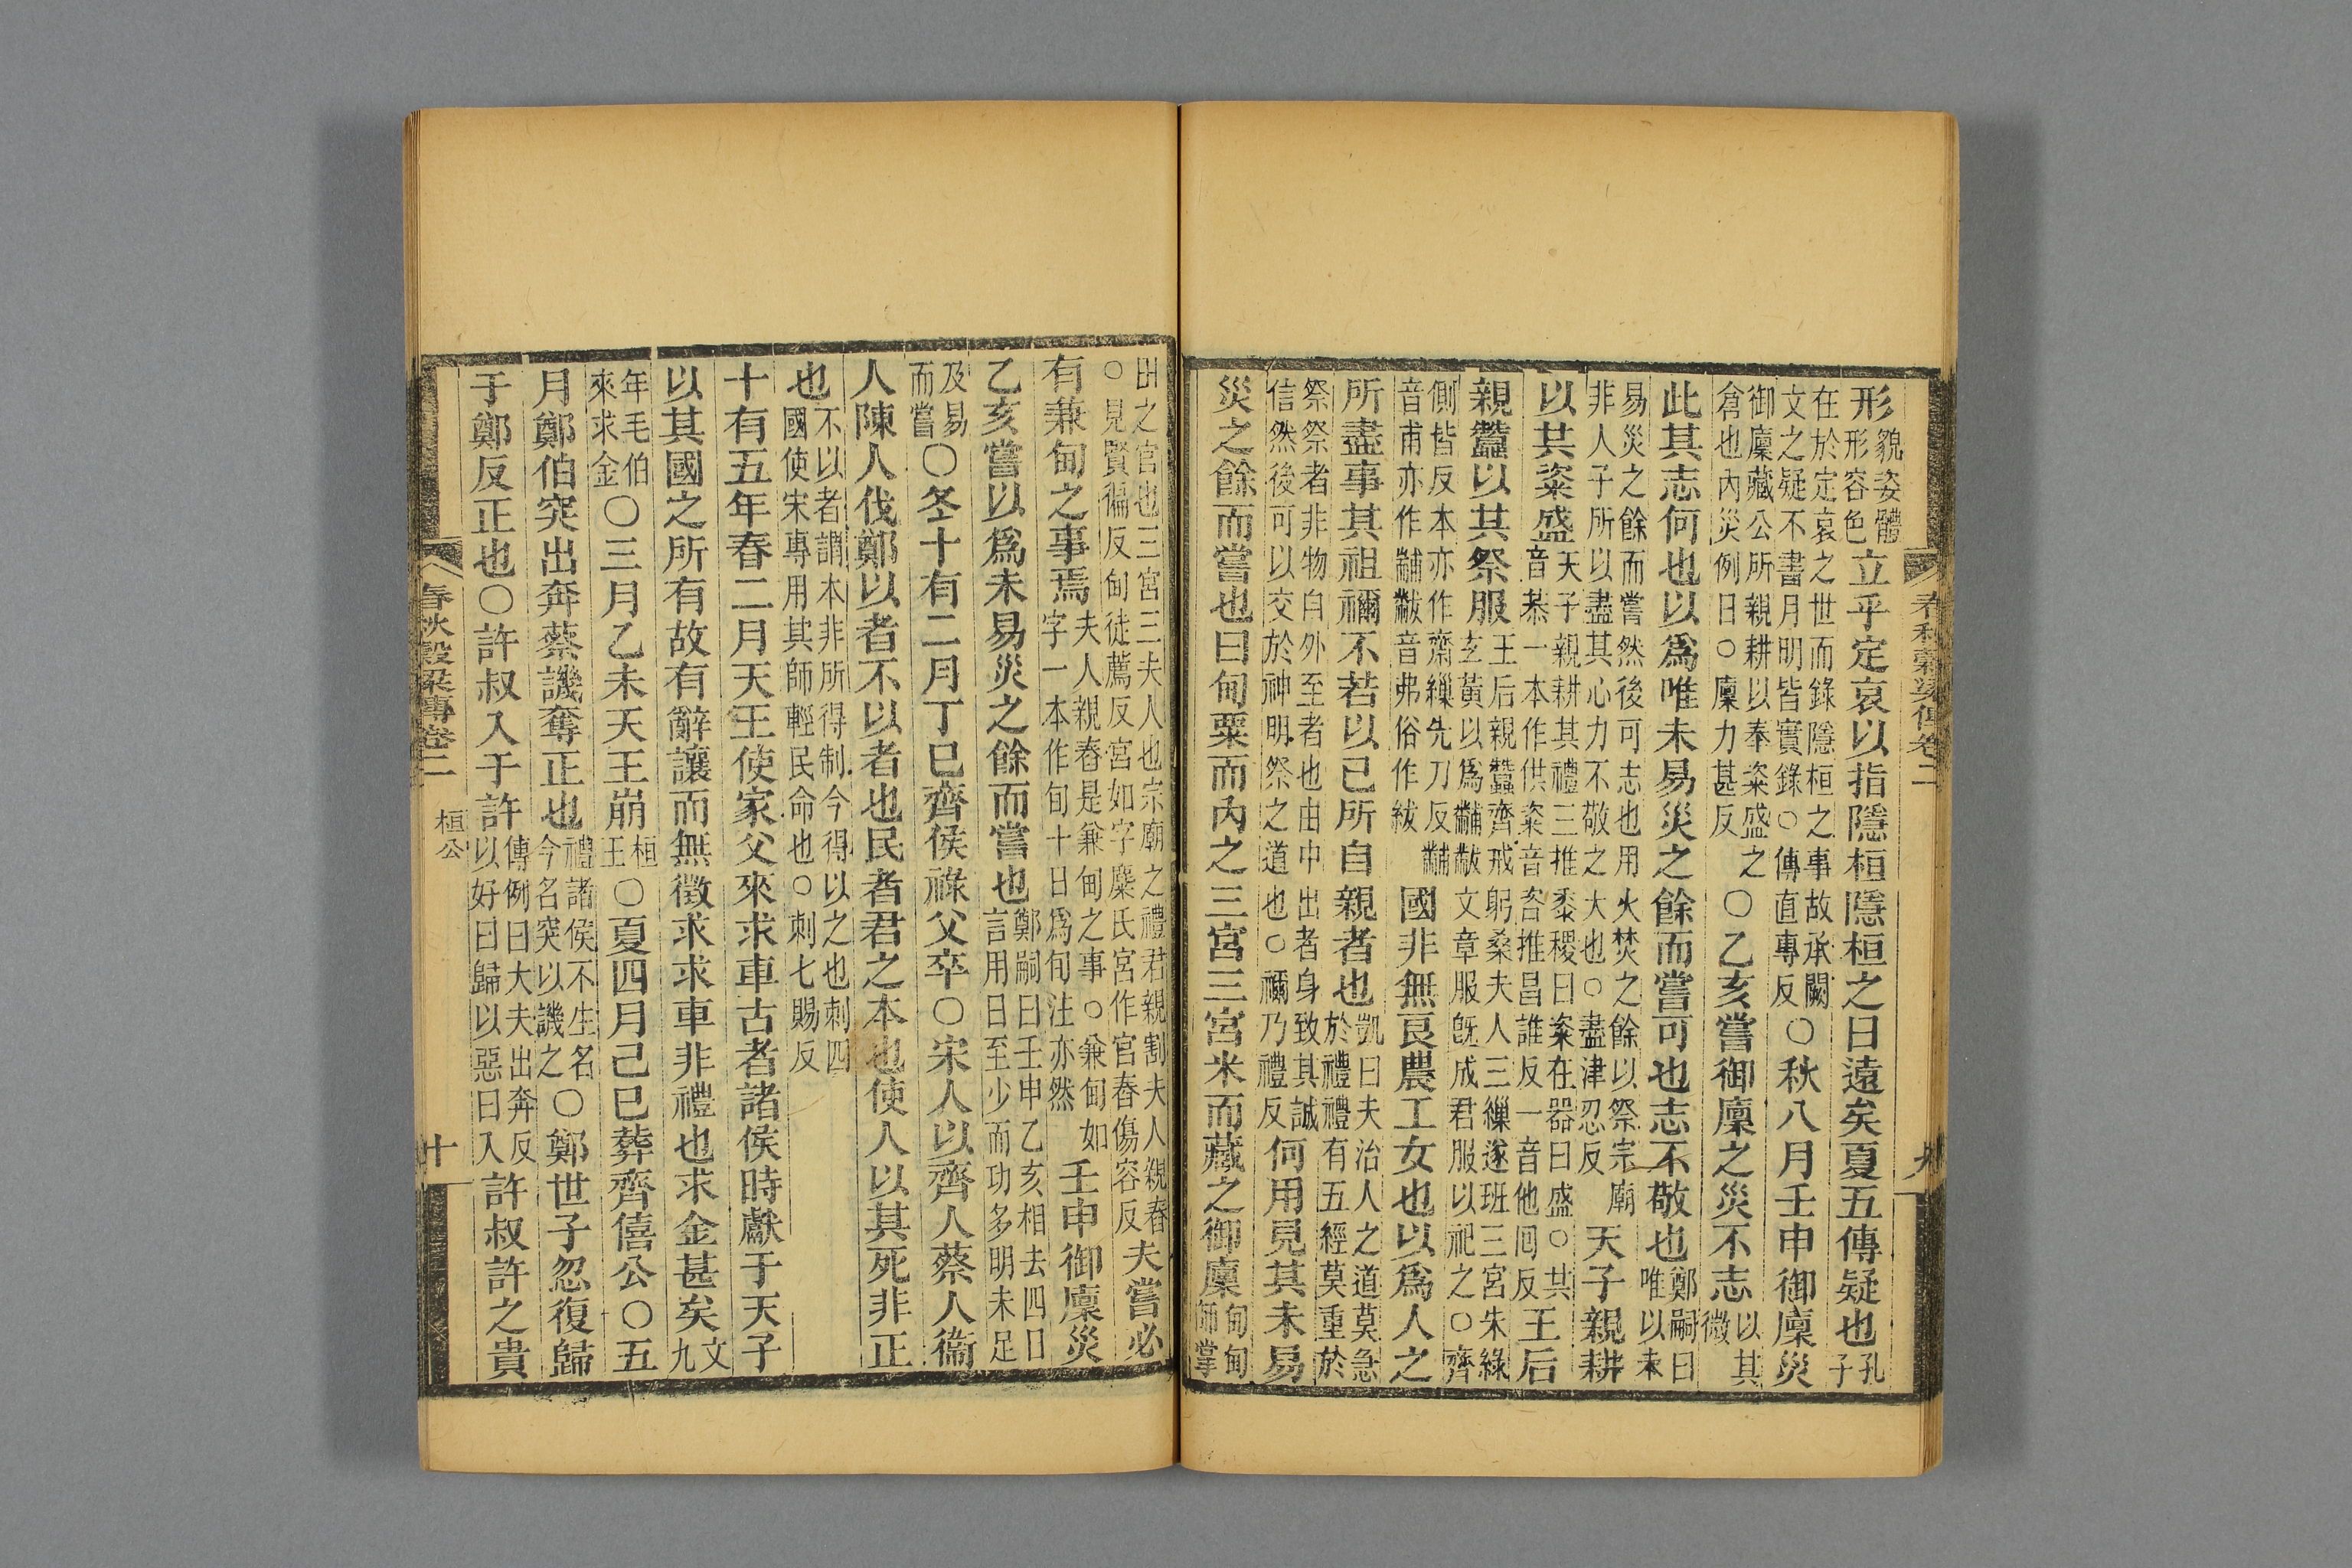 春秋穀梁傳卷二 九
形貌姿體形容色立乎定哀以指隱桓隱桓之日遠矣夏五傳疑也孔子
在於定哀之世而錄隱桓之事故承闕文之疑不書月明皆實錄○傳直專反○秋八月壬申御廩災
御廩藏公所親耕以奉粢盛之倉也內災例日○廩力甚反○乙亥嘗御廩之災不志以其微
此其志何也以爲唯未易災之餘而嘗可也志不敬也鄭嗣曰唯以未
易災之餘而嘗然後可志也用火焚之餘以祭宗廟非人子所以盡其心力不敬之大也○盡津忍反天子親耕
以共粢盛天子親耕其禮三推黍稷曰粢在器曰盛○共音恭一本作供粢音咨推昌誰反一音他回反王后
親蠶以其祭服王后親蠶齊戒躬桑夫人三繅遂班三宮朱綠玄黃以爲黼黻文章服旣成君服以祀之○齊
側皆反本亦作齋繅先刀反黼音甫亦作黼黻音弗俗作紱國非無良農工女也以爲人之
所盡事其祖禰不若以已所自親者也凱曰夫治人之道莫急於禮禮有五經莫重於
祭祭者非物自外至者也由中出者身致其誠信然後可以交於神明祭之道也○禰乃禮反何用見其未易
災之餘而嘗也曰甸粟而內之三宮三宮米而藏之御廩甸甸師掌
田之官也三宮三夫人也宗廟之禮君親割夫人親舂○見賢徧反甸徒薦反宮如字麋氏宮作官舂傷容反夫嘗必
有兼甸之事焉夫人親舂是兼甸之事○兼甸如字一本作旬十日爲旬注亦然壬申御廩災
乙亥嘗以爲未易災之餘而嘗也鄭嗣曰壬申乙亥相去四日言用日至少而功多明未足
及易而嘗○冬十有二月丁巳齊侯祿父卒○宋人以齊人蔡人衞
人陳人伐鄭以者不以者也民者君之本也使人以其死非正
也不以者謂本非所得制今得以之也刺四國使宋專用其師輕民命也○刺七賜反
十有五年春二月天王使家父來求車古者諸侯時獻于天子
以其國之所有故有辭讓而無徵求求車非禮也求金甚矣文九
年毛伯來求金○三月乙未天王崩桓王○夏四月己巳葬齊僖公○五
月鄭伯突出奔蔡譏奪正也禮諸侯不生名今名突以譏之○鄭世子忽復歸
于鄭反正也○許叔入于許傳例曰大夫出奔反以好曰歸以惡曰入許叔許之貴
春秋穀梁傳卷二 桓公 十